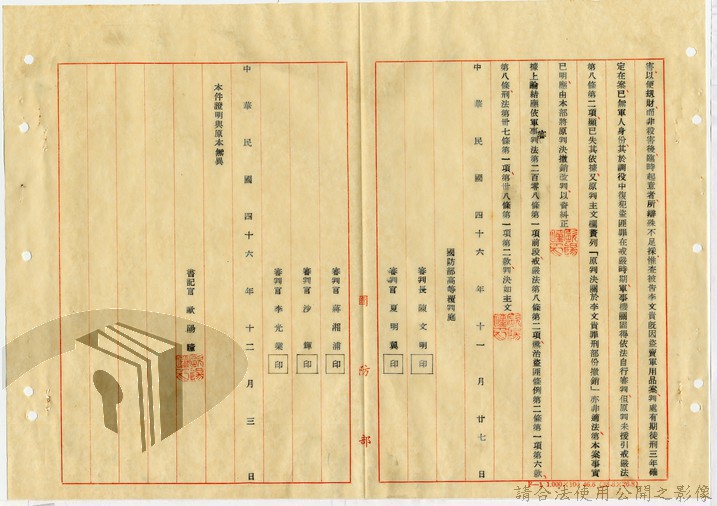 害以便規財而非殺害後臨時起意者所辯殊不足採惟查被告李文貴既因盜賣軍用品案判處有期徒刑三年確
定在案已無軍人身份其於調役中復犯盜匪罪在戒嚴時期軍事機關固得依法自行審判但原判未援引戒嚴法
第八條第二項顯已失其依據又原判主文欄贅列「原判決關於李文貴罪刑部份撤銷」亦非適法第本案事實
已明應由本部將原判決撤銷改判以資糾正
據上論結應依軍事審判法第二百零八條第一項前段戒嚴法第八條第二項懲治盜匪條例第二條第一項第六款
第八條刑法第卅七條第一項第卅八條第一項第二款判決如主文
中華民國四十六年十一月廿七日
國防部高等覆判庭
審判長陳文明印
審判官夏明翼印
國防部
審判官蔣湘浦印
審判官沙輝印
審判官李光燊印
中華民國四十六年十二月三日
書記官歐陽瞳
本件證明與原本無異
請合法使用公開之影像